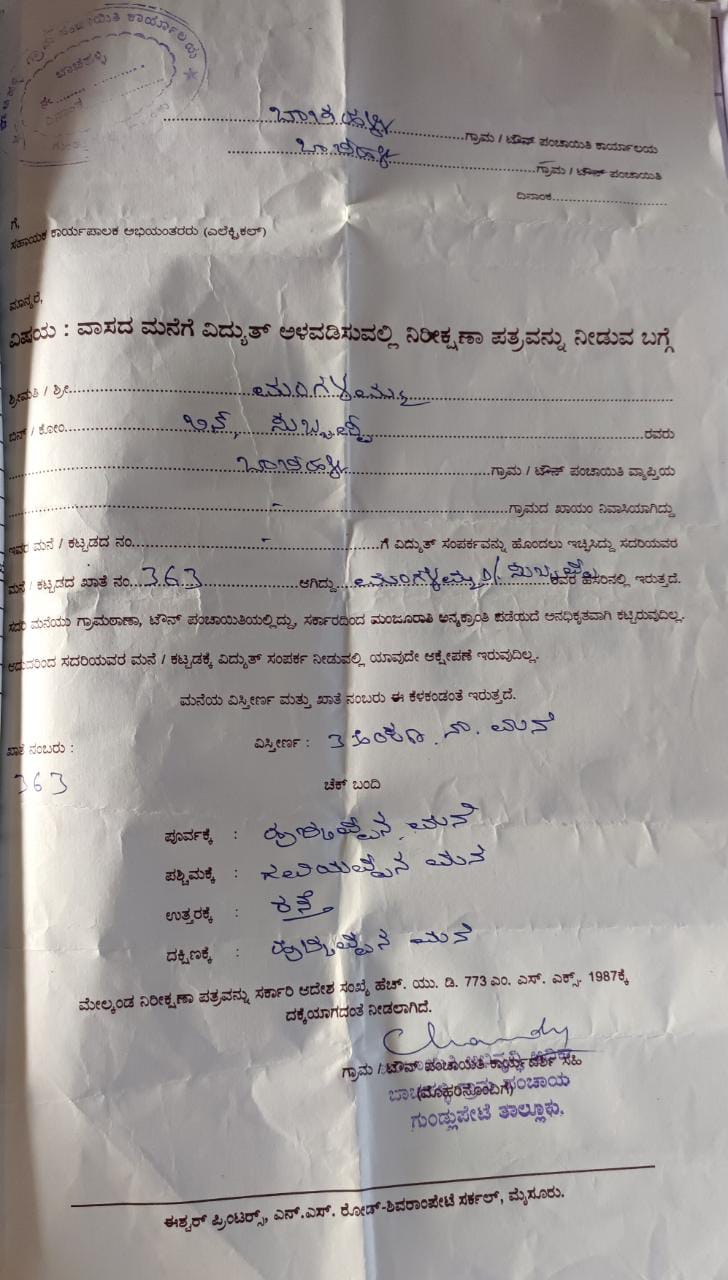 ಗ್ರಾಮ ಪಂಚಾಯಿತಿ ಕಾರ್ಯಾಲಯ
ಬಾಚಹಳ್ಳಿ
ಬಾಚಹಳ್ಳಿ ಗ್ರಾಮ / ಟೌನ್ ಪಂಚಾಯಿತಿ ಕಾರ್ಯಾಲಯ
ಬಾಚಹಳ್ಳಿ ಗ್ರಾಮ / ಟೌನ್ ಪಂಚಾಯಿತಿ
ದಿನಾಂಕ
ಗೆ,
ಸಹಾಯಕ ಕಾರ್ಯಪಾಲಕ ಅಭಿಯಂತರರು (ಎಲೆಕ್ಟ್ರಿಕಲ್)
ಮಾನ್ಯರೆ,
ವಿಷಯ : ವಾಸದ ಮನೆಗೆ ವಿದ್ಯುತ್ ಅಳವಡಿಸುವಲ್ಲಿ ನಿರೀಕ್ಷಣಾ ಪತ್ರವನ್ನು ನೀಡುವ ಬಗ್ಗೆ
ಶ್ರೀಮತಿ / ಶ್ರೀ ಮಂಗಳಮ್ಮ
ಬಿನ್ / ಕೋಂ ಬಿನ್, ಸುಬ್ಬಪ್ಪ ರವರು
ಬಾಚಹಳ್ಳಿ ಗ್ರಾಮ / ಟೌನ್ ಪಂಚಾಯಿತಿ ವ್ಯಾಪ್ತಿಯ
- ಗ್ರಾಮದ ಖಾಯಂ ನಿವಾಸಿಯಾಗಿದ್ದು
ಇವರ ಮನೆ / ಕಟ್ಟಡದ ನಂ. - ಗೆ ವಿದ್ಯುತ್ ಸಂಪರ್ಕವನ್ನು ಹೊಂದಲು ಇಚ್ಛಿಸಿದ್ದು ಸದರಿಯವರ
ಮನೆ / ಕಟ್ಟಡದ ಖಾತೆ ನಂ. 363 ಆಗಿದ್ದು ಮಂಗಳಮ್ಮ ಸುಬ್ಬಪ್ಪ ರವರ ಹೆಸರಿನಲ್ಲಿ ಇರುತ್ತದೆ.
ಸದರಿ ಮನೆಯು ಗ್ರಾಮಠಾಣಾ, ಟೌನ್ ಪಂಚಾಯಿತಿಯಲ್ಲಿದ್ದು, ಸರ್ಕಾರದಿಂದ ಮಂಜೂರಾತಿ ಅನ್ಯಕ್ರಾಂತಿ ಪಡೆಯದೆ ಅನಧಿಕೃತವಾಗಿ ಕಟ್ಟಿರುವುದಿಲ್ಲ.
ಆದುದರಿಂದ ಸದರಿಯವರ ಮನೆ / ಕಟ್ಟಡಕ್ಕೆ ವಿದ್ಯುತ್ ಸಂಪರ್ಕ ನೀಡುವಲ್ಲಿ ಯಾವುದೇ ಆಕ್ಷೇಪಣೆ ಇರುವುದಿಲ್ಲ.
ಮನೆಯ ವಿಸ್ತೀರ್ಣ ಮತ್ತು ಖಾತೆ ನಂಬರು ಈ ಕೆಳಕಂಡಂತೆ ಇರುತ್ತದೆ.
ಖಾತೆ ನಂಬರು : ವಿಸ್ತೀರ್ಣ : 3 ಅಂಕಣ ನಾ. ಮನೆ
363
ಚೆಕ್ ಬಂದಿ
ಪೂರ್ವಕ್ಕೆ : ಪುಟ್ಟಪ್ಪನ ಮನೆ
ಪಶ್ಚಿಮಕ್ಕೆ : ಮನೆ
ಉತ್ತರಕ್ಕೆ : ರಸ್ತೆ
ದಕ್ಷಿಣಕ್ಕೆ : ಪುಟ್ಟಪ್ಪನ ಮನೆ
ಮೇಲ್ಕಂಡ ನಿರೀಕ್ಷಣಾ ಪತ್ರವನ್ನು ಸರ್ಕಾರಿ ಆದೇಶ ಸಂಖ್ಯೆ ಹೆಚ್. ಯು. ಡಿ. 773 ಎಂ. ಎಸ್. ಎಕ್ಸ್. 1987ಕ್ಕೆ
ದಕ್ಕೆಯಾಗದಂತೆ ನೀಡಲಾಗಿದೆ.
ಗ್ರಾಮ / ಟೌನ್ ಪಂಚಾಯಿತಿ ಕಾರ್ಯದರ್ಶಿ ಸಹಿ
(ಮೊಹರಿನೊಂದಿಗೆ)
ಗುಂಡ್ಲುಪೇಟೆ ತಾಲ್ಲೂಕು.
ಈಶ್ವರ್ ಪ್ರಿಂಟರ್ಸ್, ಎನ್.ಎಸ್. ರೋಡ್-ಶಿವರಾಂಪೇಟೆ ಸರ್ಕಲ್, ಮೈಸೂರು.